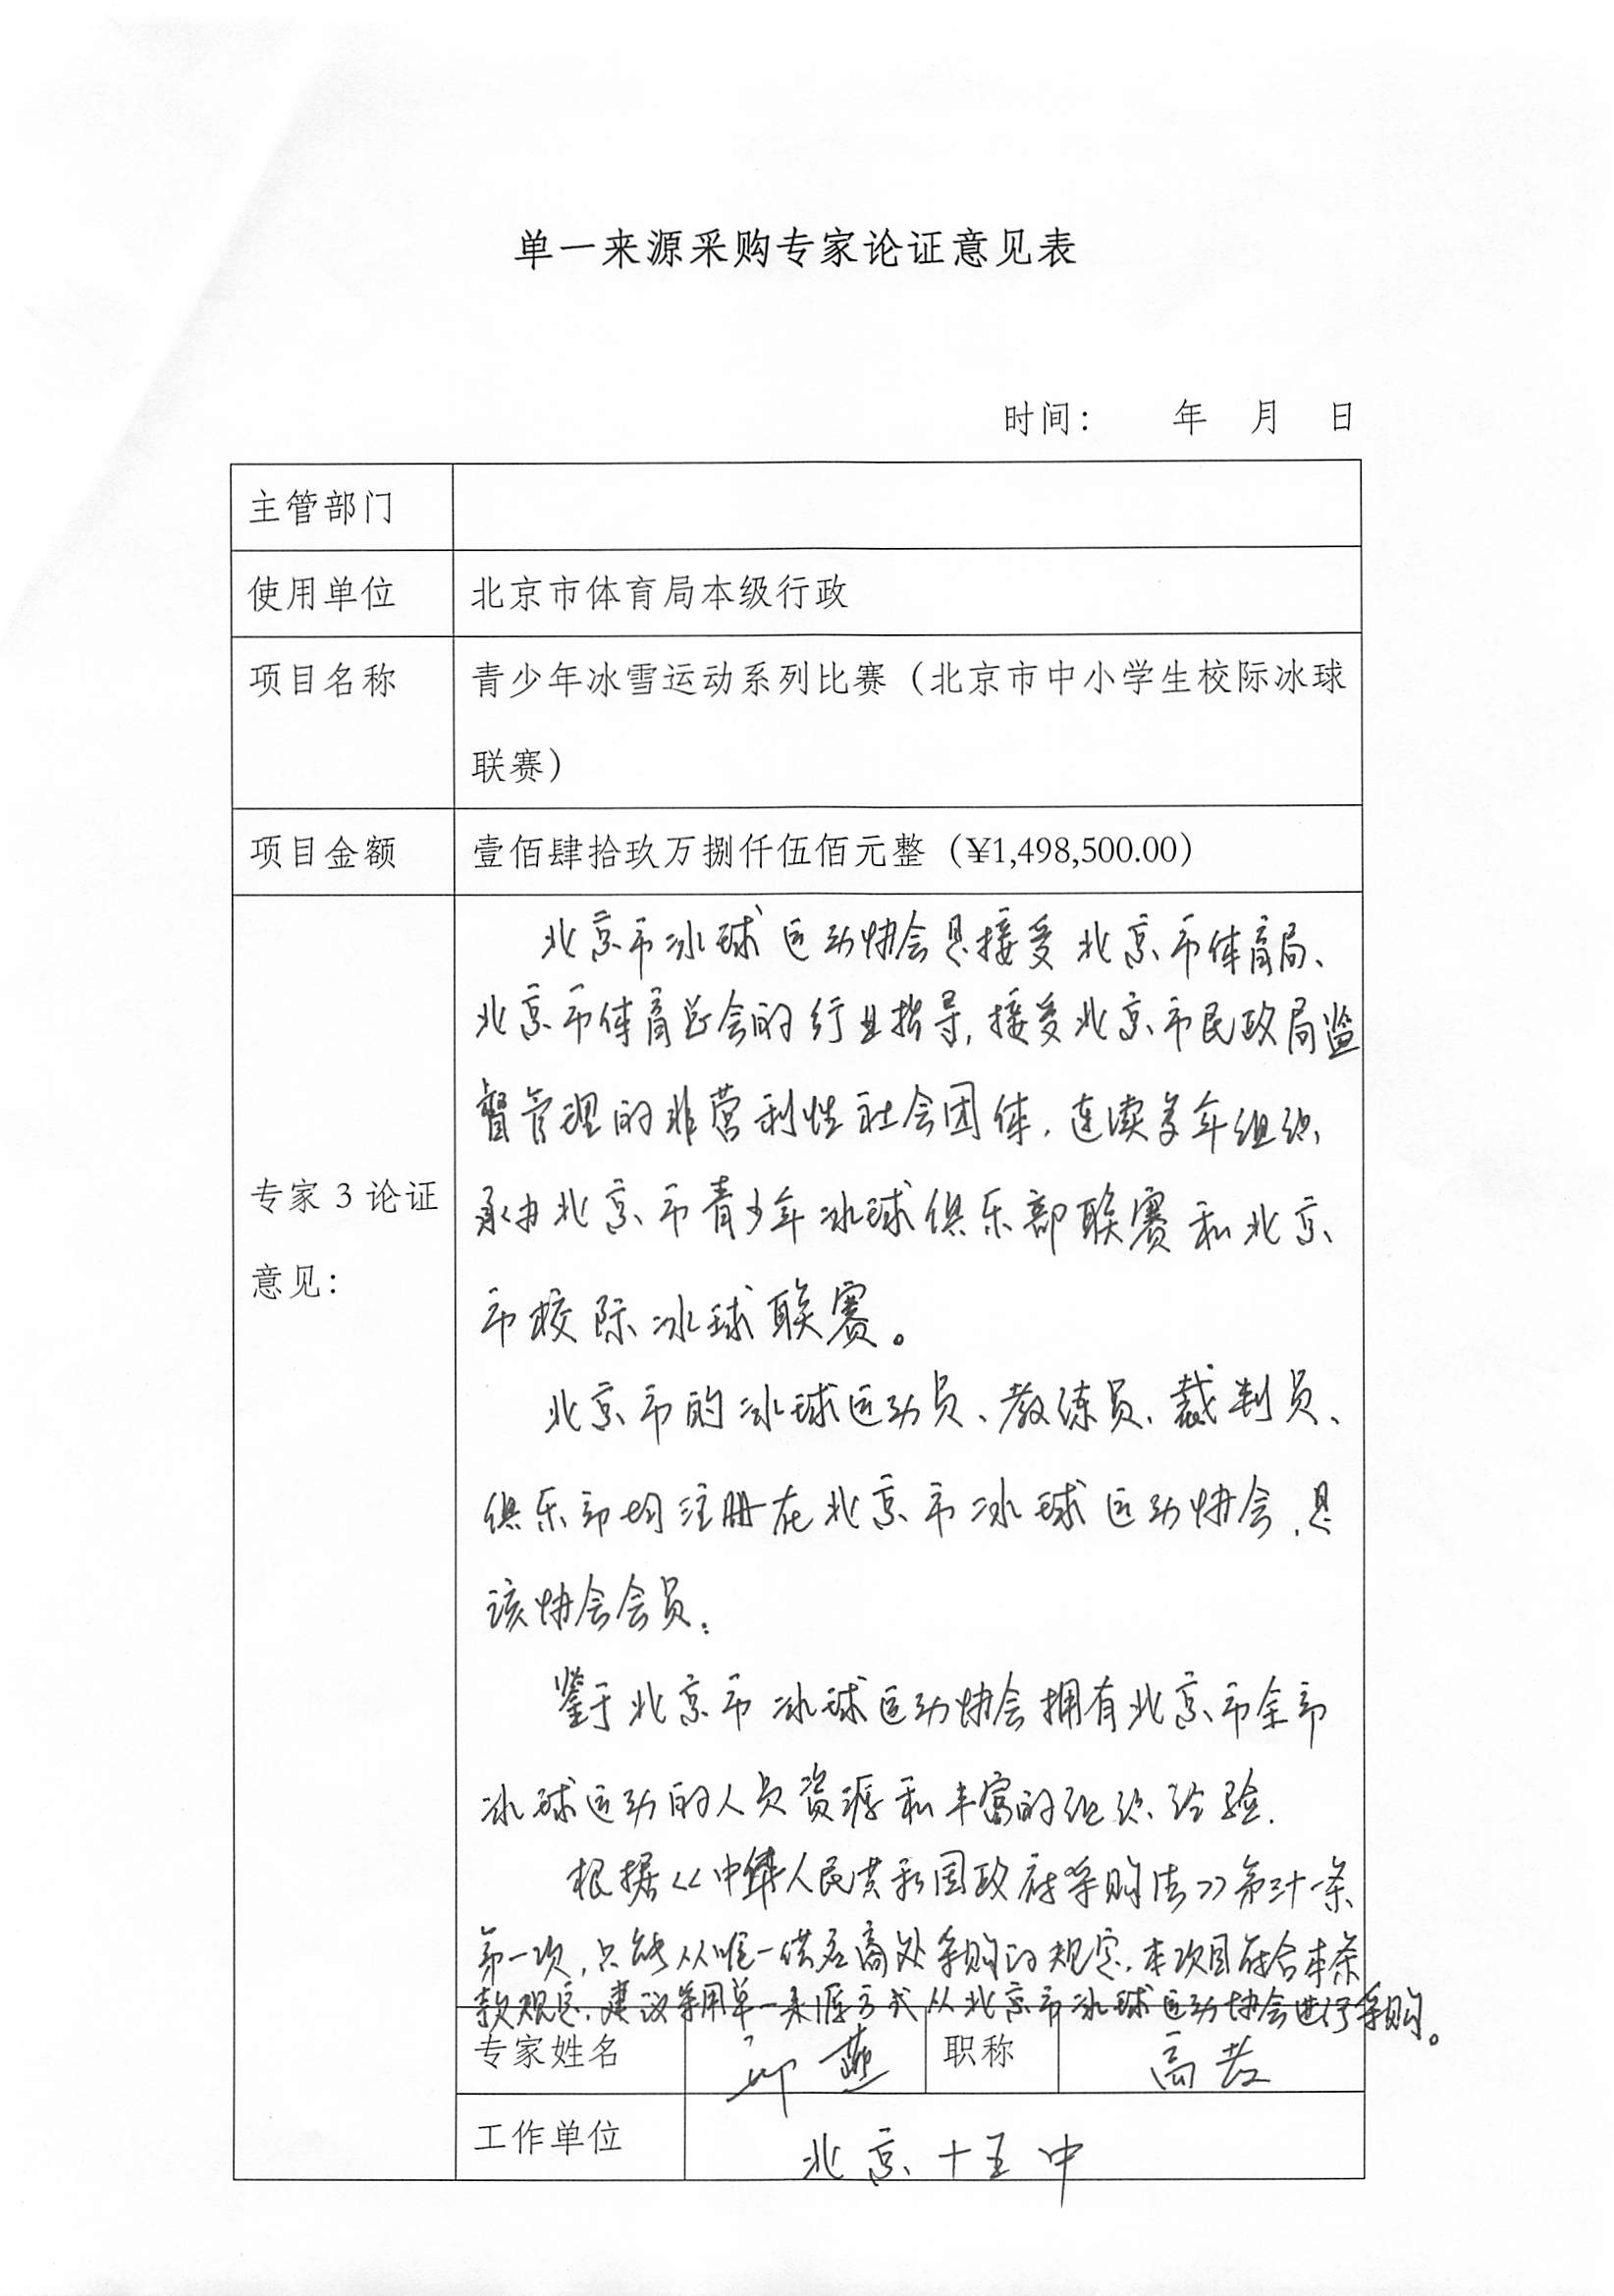 单一来源采购专家论证意见表
时间： 年 月 日
主管部门
使用单位 北京市体育局本级行政
项目名称 青少年冰雪运动系列比赛（北京市中小学生校际冰球
联赛）
项目金额 壹佰肆拾玖万捌仟伍佰元整（¥1,498,500.00）
专家 3 论证
意见：
北京市冰球运动协会是接受北京市体育局、
北京市体育总会的行业指导，接受北京市民政局监
督管理的非营利性社会团体，连续多年组织
承办北京市青少年冰球俱乐部联赛和北京
市校际冰球联赛。
北京市的冰球运动员、教练员、裁判员、
俱乐部均注册在北京市冰球运动协会，是
该协会会员。
鉴于北京市冰球运动协会拥有北京市全部
冰球运动的人员资源和丰富的组织经验.
根据《中华人民共和国政府采购法》第三十一条
第一项，只能从唯一供应商处采购的规定，本项目符合本条
款规定，建议采用单一来源方式从北京市冰球运动协会进行采购。
专家姓名 邱燕 职称 高教
工作单位 北京十五中